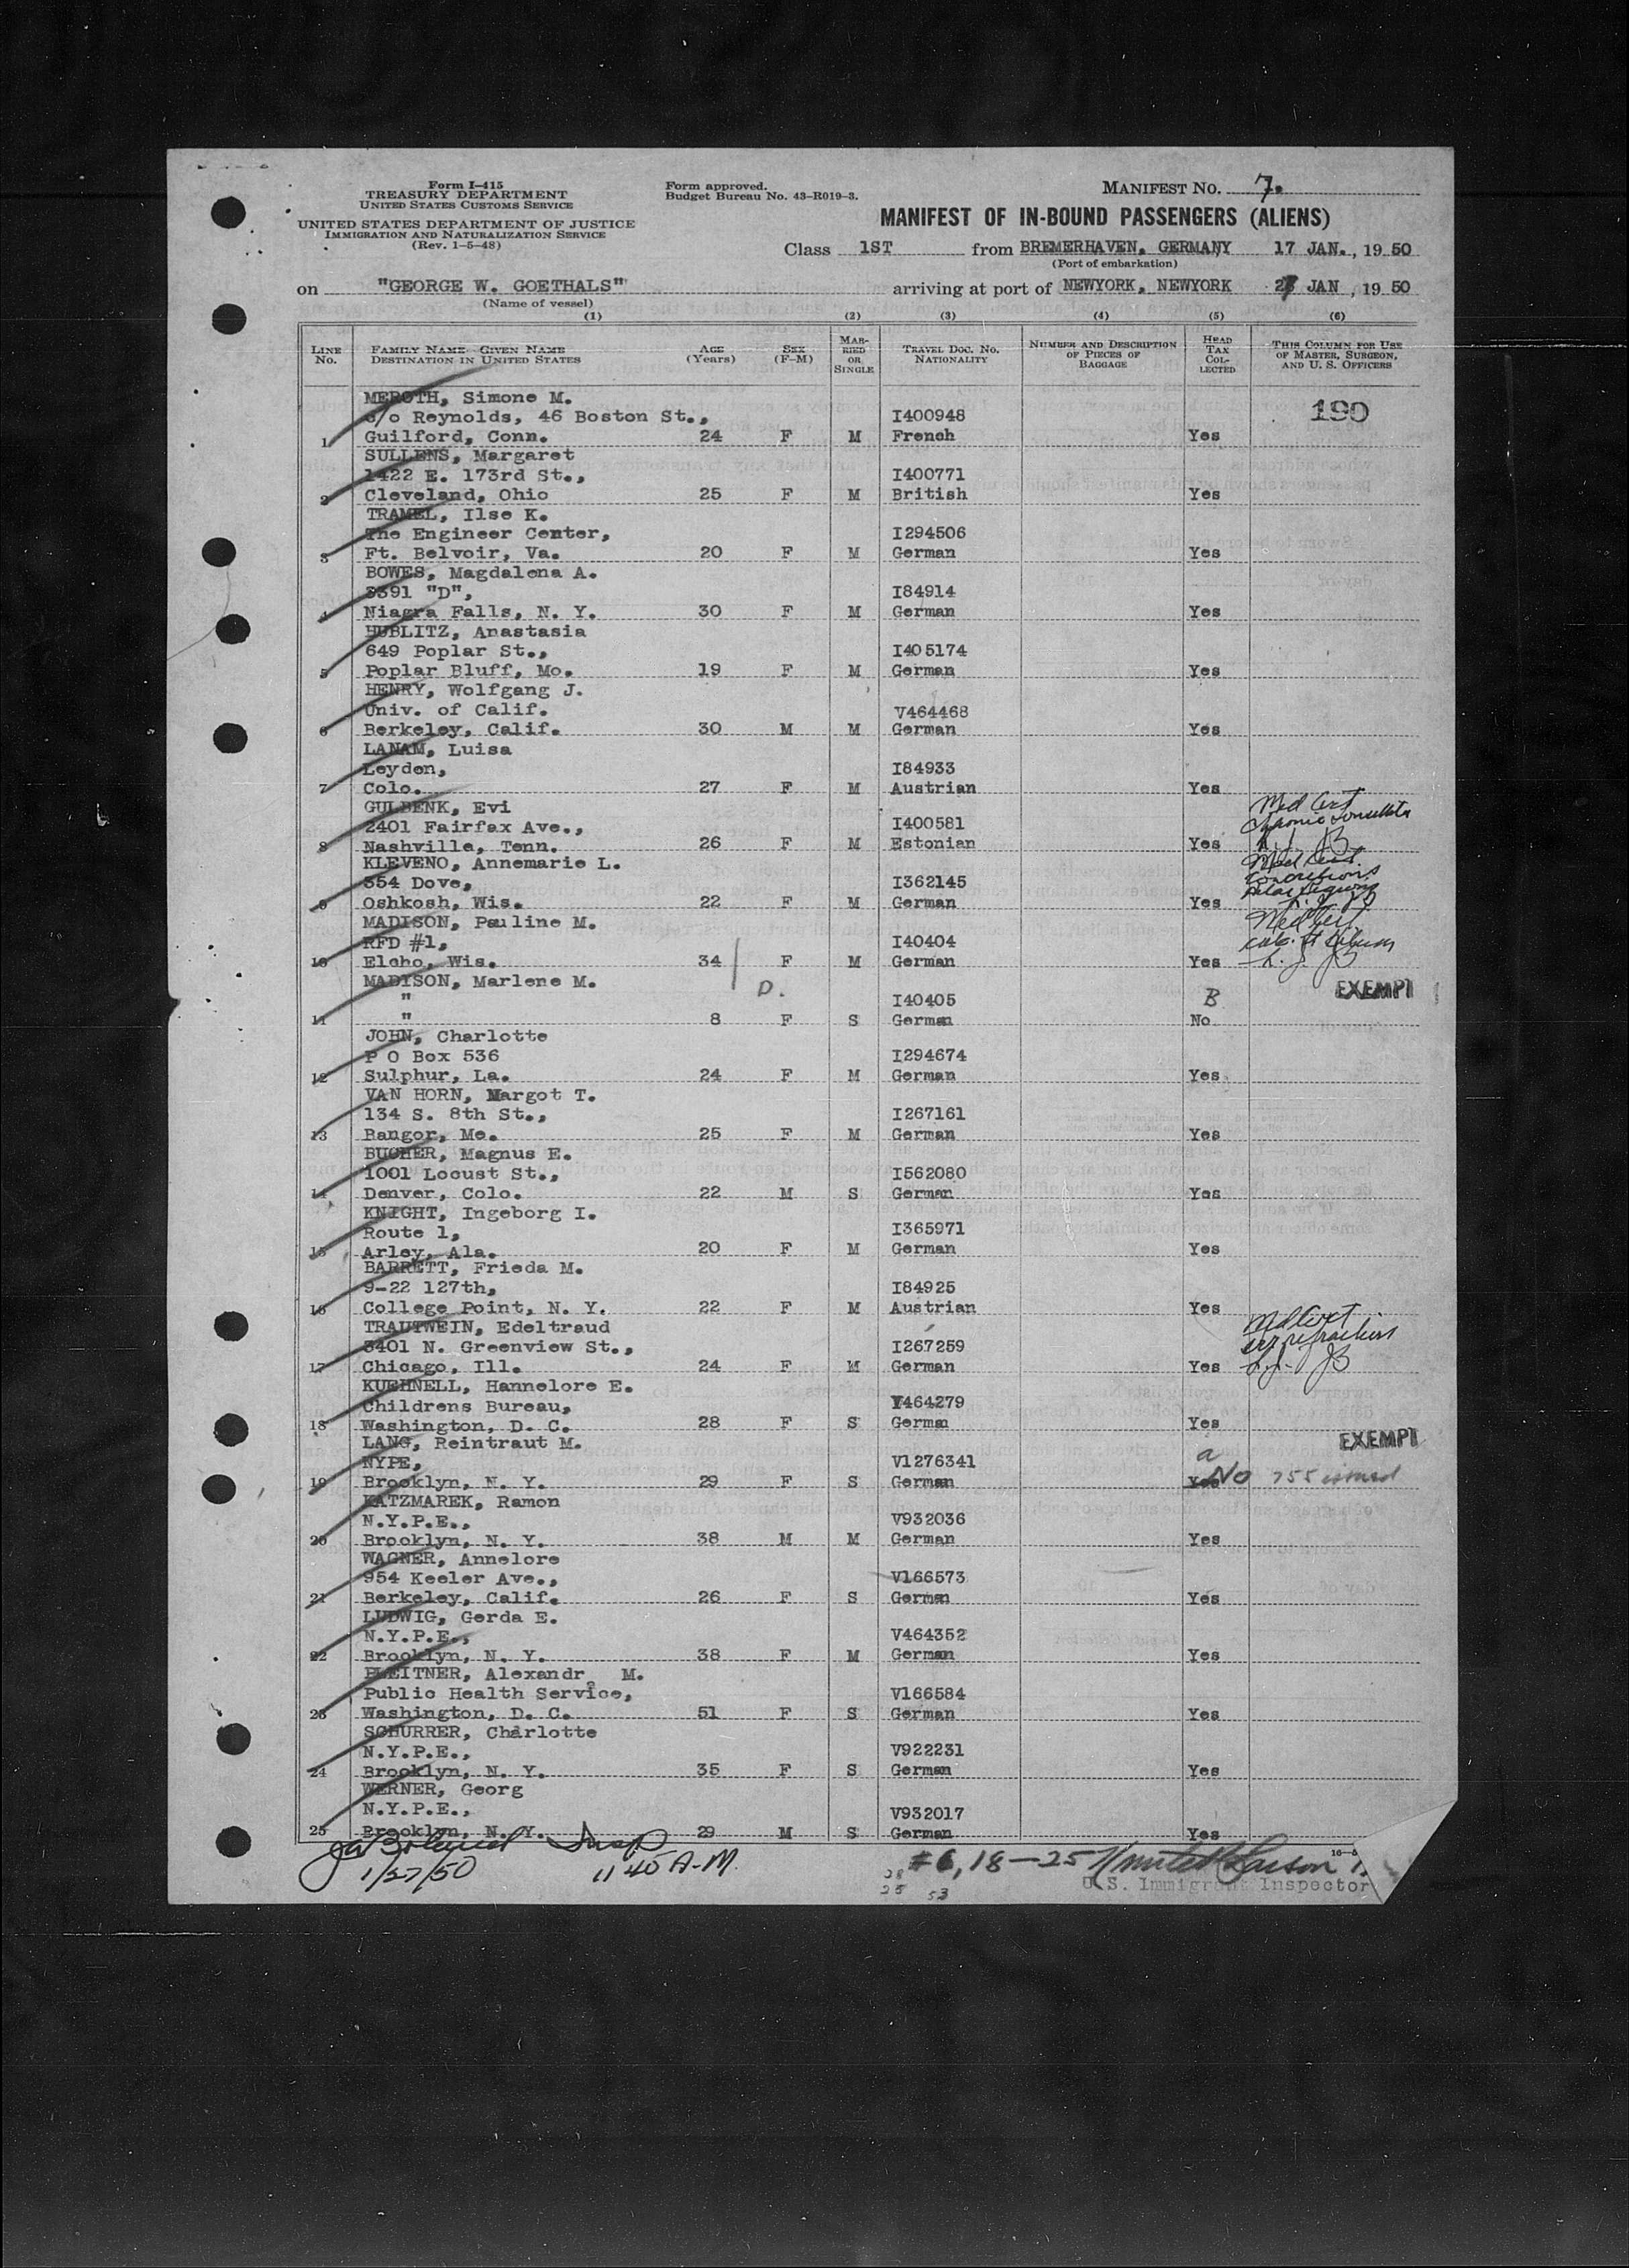 Form I-415
TREASURY DEPARTMENT
UNITED STATES CUSTOMS SERVICE
UNITED STATES DEPARTMENT OF JUSTICE
IMMIGRATION AND NATURALIZATION SERVICE
(Rev. 1-5-48)
Form approved.
Budget Bureau No. 43-R019-3.
MANIFEST NO. 7.
MANIFEST OF IN-BOUND PASSENGERS (ALIENS)
Class 1ST from BREMERHAVEN, GERMANY 17 JAN., 19 50
(Port of embarkation)
on "GEORGE W. GOETHALS" arriving at port of NEWYORK, NEWYORK 27 JAN, 19 50
(Name of vessel)
(1) (2) (3) (4) (5) (6)
LINE No. FAMILY NAME—GIVEN NAME DESTINATION IN UNITED STATES AGE (Years) SEX (F-M) MARRIED OR SINGLE TRAVEL DOC. NO. NATIONALITY NUMBER AND DESCRIPTION OF PIECES OF BAGGAGE HEAD TAX COLLECTED THIS COLUMN FOR USE OF MASTER, SURGEON, AND U. S. OFFICERS
MEROTH, Simone M.
c/o Reynolds, 46 Boston St., I400948 190
1 Guilford, Conn. 24 F M French Yes
SULLENS, Margaret
1422 E. 173rd St., I400771
2 Cleveland, Ohio 25 F M British Yes
TRAMEL, Ilse K.
The Engineer Center, I294506
3 Ft. Belvoir, Va. 20 F M German Yes
BOWES, Magdalena A.
3391 "D", I84914
4 Niagra Falls, N. Y. 30 F M German Yes
HUBLITZ, Anastasia
649 Poplar St., I405174
5 Poplar Bluff, Mo. 19 F M German Yes
HENRY, Wolfgang J.
Univ. of Calif. V464468
6 Berkeley, Calif. 30 M M German Yes
LANAM, Luisa
Leyden, I84933
7 Colo. 27 F M Austrian Yes
GULBENK, Evi Med Cert
2401 Fairfax Ave., I400581
8 Nashville, Tenn. 26 F M Estonian Yes
KLEVENO, Annemarie L. Med Cert.
354 Dove, I362145
9 Oshkosh, Wis. 22 F M German Yes
MADISON, Pauline M. Med Cert.
RFD #1, I40404
10 Elcho, Wis. 34 F M German Yes
MADISON, Marlene M. D. EXEMPT
" I40405 B
11 " 8 F S German No
JOHN, Charlotte
P O Box 536 I294674
12 Sulphur, La. 24 F M German Yes
VAN HORN, Margot T.
134 S. 8th St., I267161
13 Bangor, Me. 25 F M German Yes
BUCHER, Magnus E.
1001 Locust St., I562080
14 Denver, Colo. 22 M S German Yes
KNIGHT, Ingeborg I.
Route 1, I365971
15 Arley, Ala. 20 F M German Yes
BARRETT, Frieda M.
9-22 127th, I84925
16 College Point, N. Y. 22 F M Austrian Yes
TRAUTWEIN, Edeltraud Med Cert
3401 N. Greenview St., I267259
17 Chicago, Ill. 24 F M German Yes
KUEHNELL, Hannelore E.
Childrens Bureau, V464279
18 Washington, D. C. 28 F S German Yes
LANG, Reintraut M. EXEMPT
NYPE, V1276341 a
19 Brooklyn, N. Y. 29 F S German Yes No 755 issued
KATZMAREK, Ramon
N.Y.P.E., V932036
20 Brooklyn, N. Y. 38 M M German Yes
WAGNER, Annelore
954 Keeler Ave., V166573
21 Berkeley, Calif. 26 F S German Yes
LUDWIG, Gerda E.
N.Y.P.E., V464352
22 Brooklyn, N. Y. 38 F M German Yes
PLEITNER, Alexandra M.
Public Health Service, V166584
23 Washington, D. C. 51 F S German Yes
SCHURRER, Charlotte
N.Y.P.E., V922231
24 Brooklyn, N. Y. 35 F S German Yes
WERNER, Georg
N.Y.P.E., V932017
25 Brooklyn, N. Y. 29 M S German Yes
Insp #6, 18-25
1/27/50 1140 A.M. 28 U. S. Immigrant Inspector
25 53